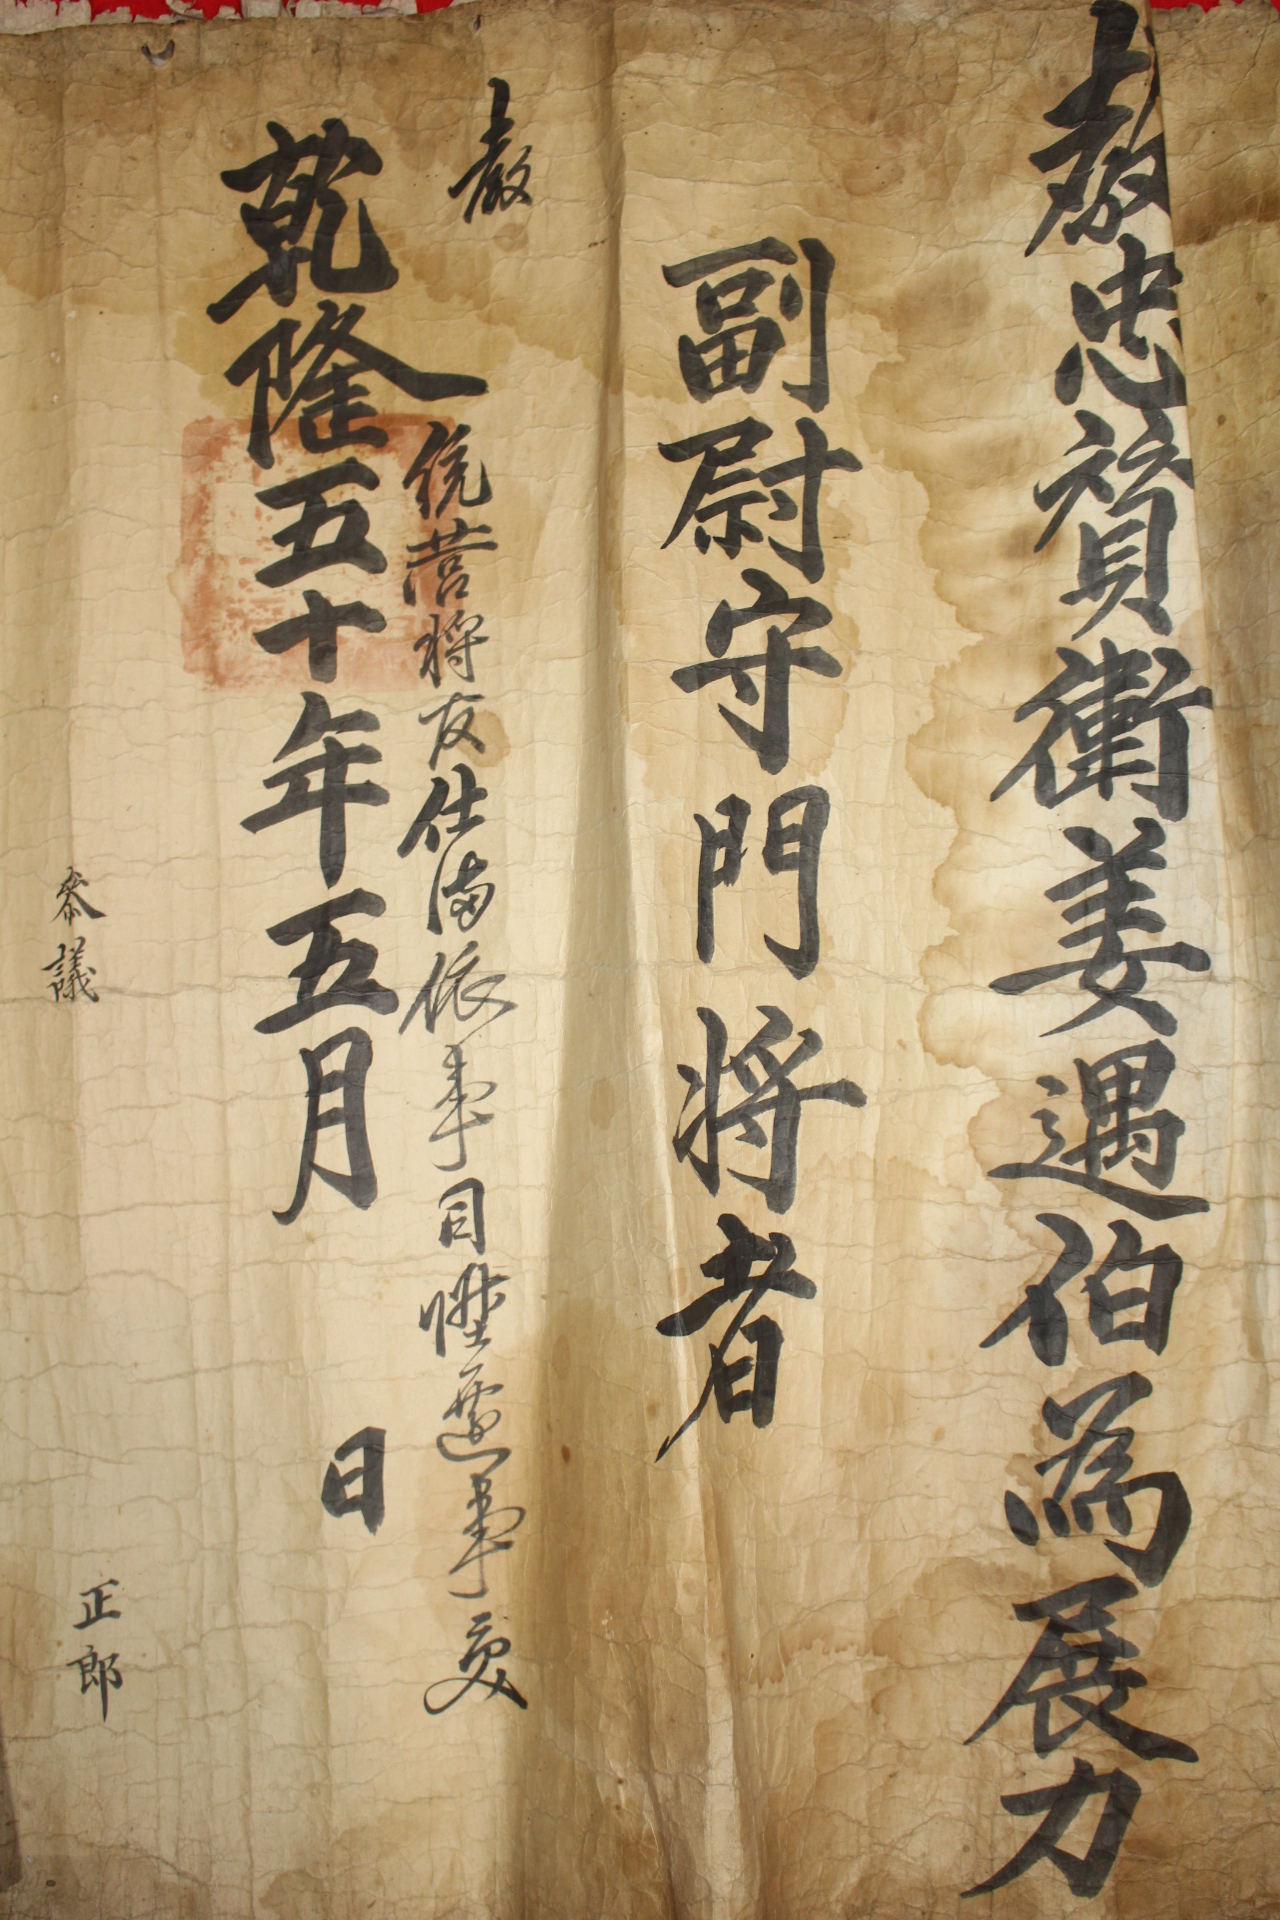 敎忠贊衛姜遇伯爲展力
副尉守門將者
敎
統營將仕滿依事目陞遷事受
乾隆五十年五月 日
參議 正郎